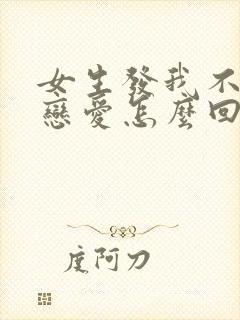 女生發我不
戀愛怎麼回
度阿刀